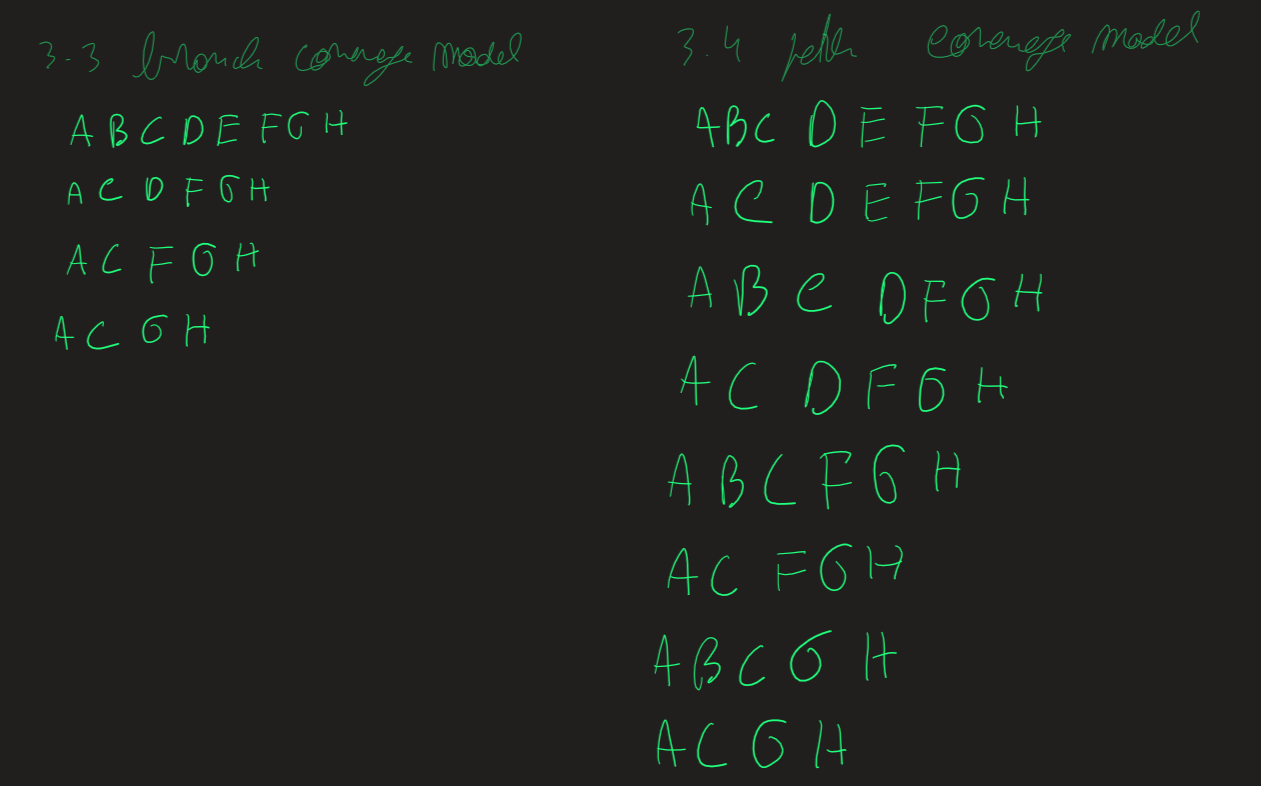 3.3 branch coverage model
A B C D E F G H
A C D F G H
A C F G H
A C G H
3.4 path coverage model
A B C D E F G H
A C D E F G H
A B C D F G H
A C D F G H
A B C F G H
A C F G H
A B C G H
A C G H